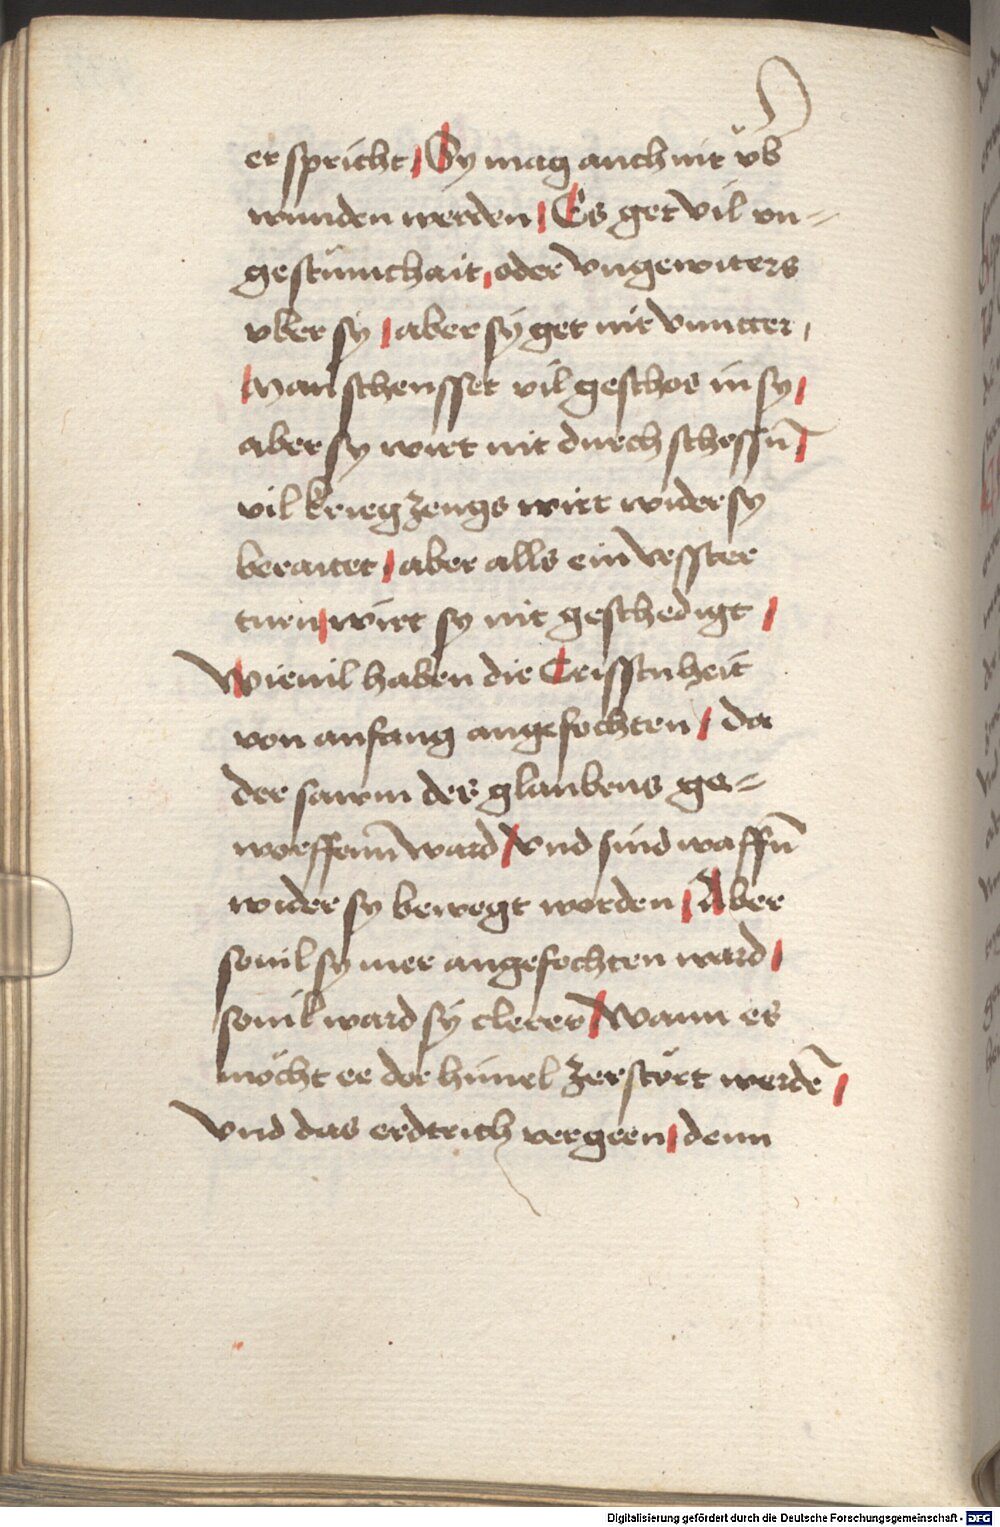 er spricht / Sy mag auch nit v̈b
wunden werden / Es get vil vn=
gestümchait / oder vngewiters
vber sy / aber sÿ get nit vnntter /
Man scheusset vil geschos in sy /
aber sy wirt nit durch schossn̄ /
vil krieg zeugs wirt wider sy
beraitet / aber alls ein vesster
turn / wirt sy nit geschedigt /
Wieuil haben die Crisstnheit
von anfang angefochten / da
der sawm des glaubens ge=
worffenn̄ ward / vnd sind waffn̄
wider sy bewegt worden / Aber
souil sy mer angefochten ward /
souil ward sÿ clerer / Wann es
möcht ee der himel zerstört werdē /
Vnd das erdtrich vergeen / denn
Digitalisierung gefördert durch die Deutsche Forschungsgemeinschaft - DFG